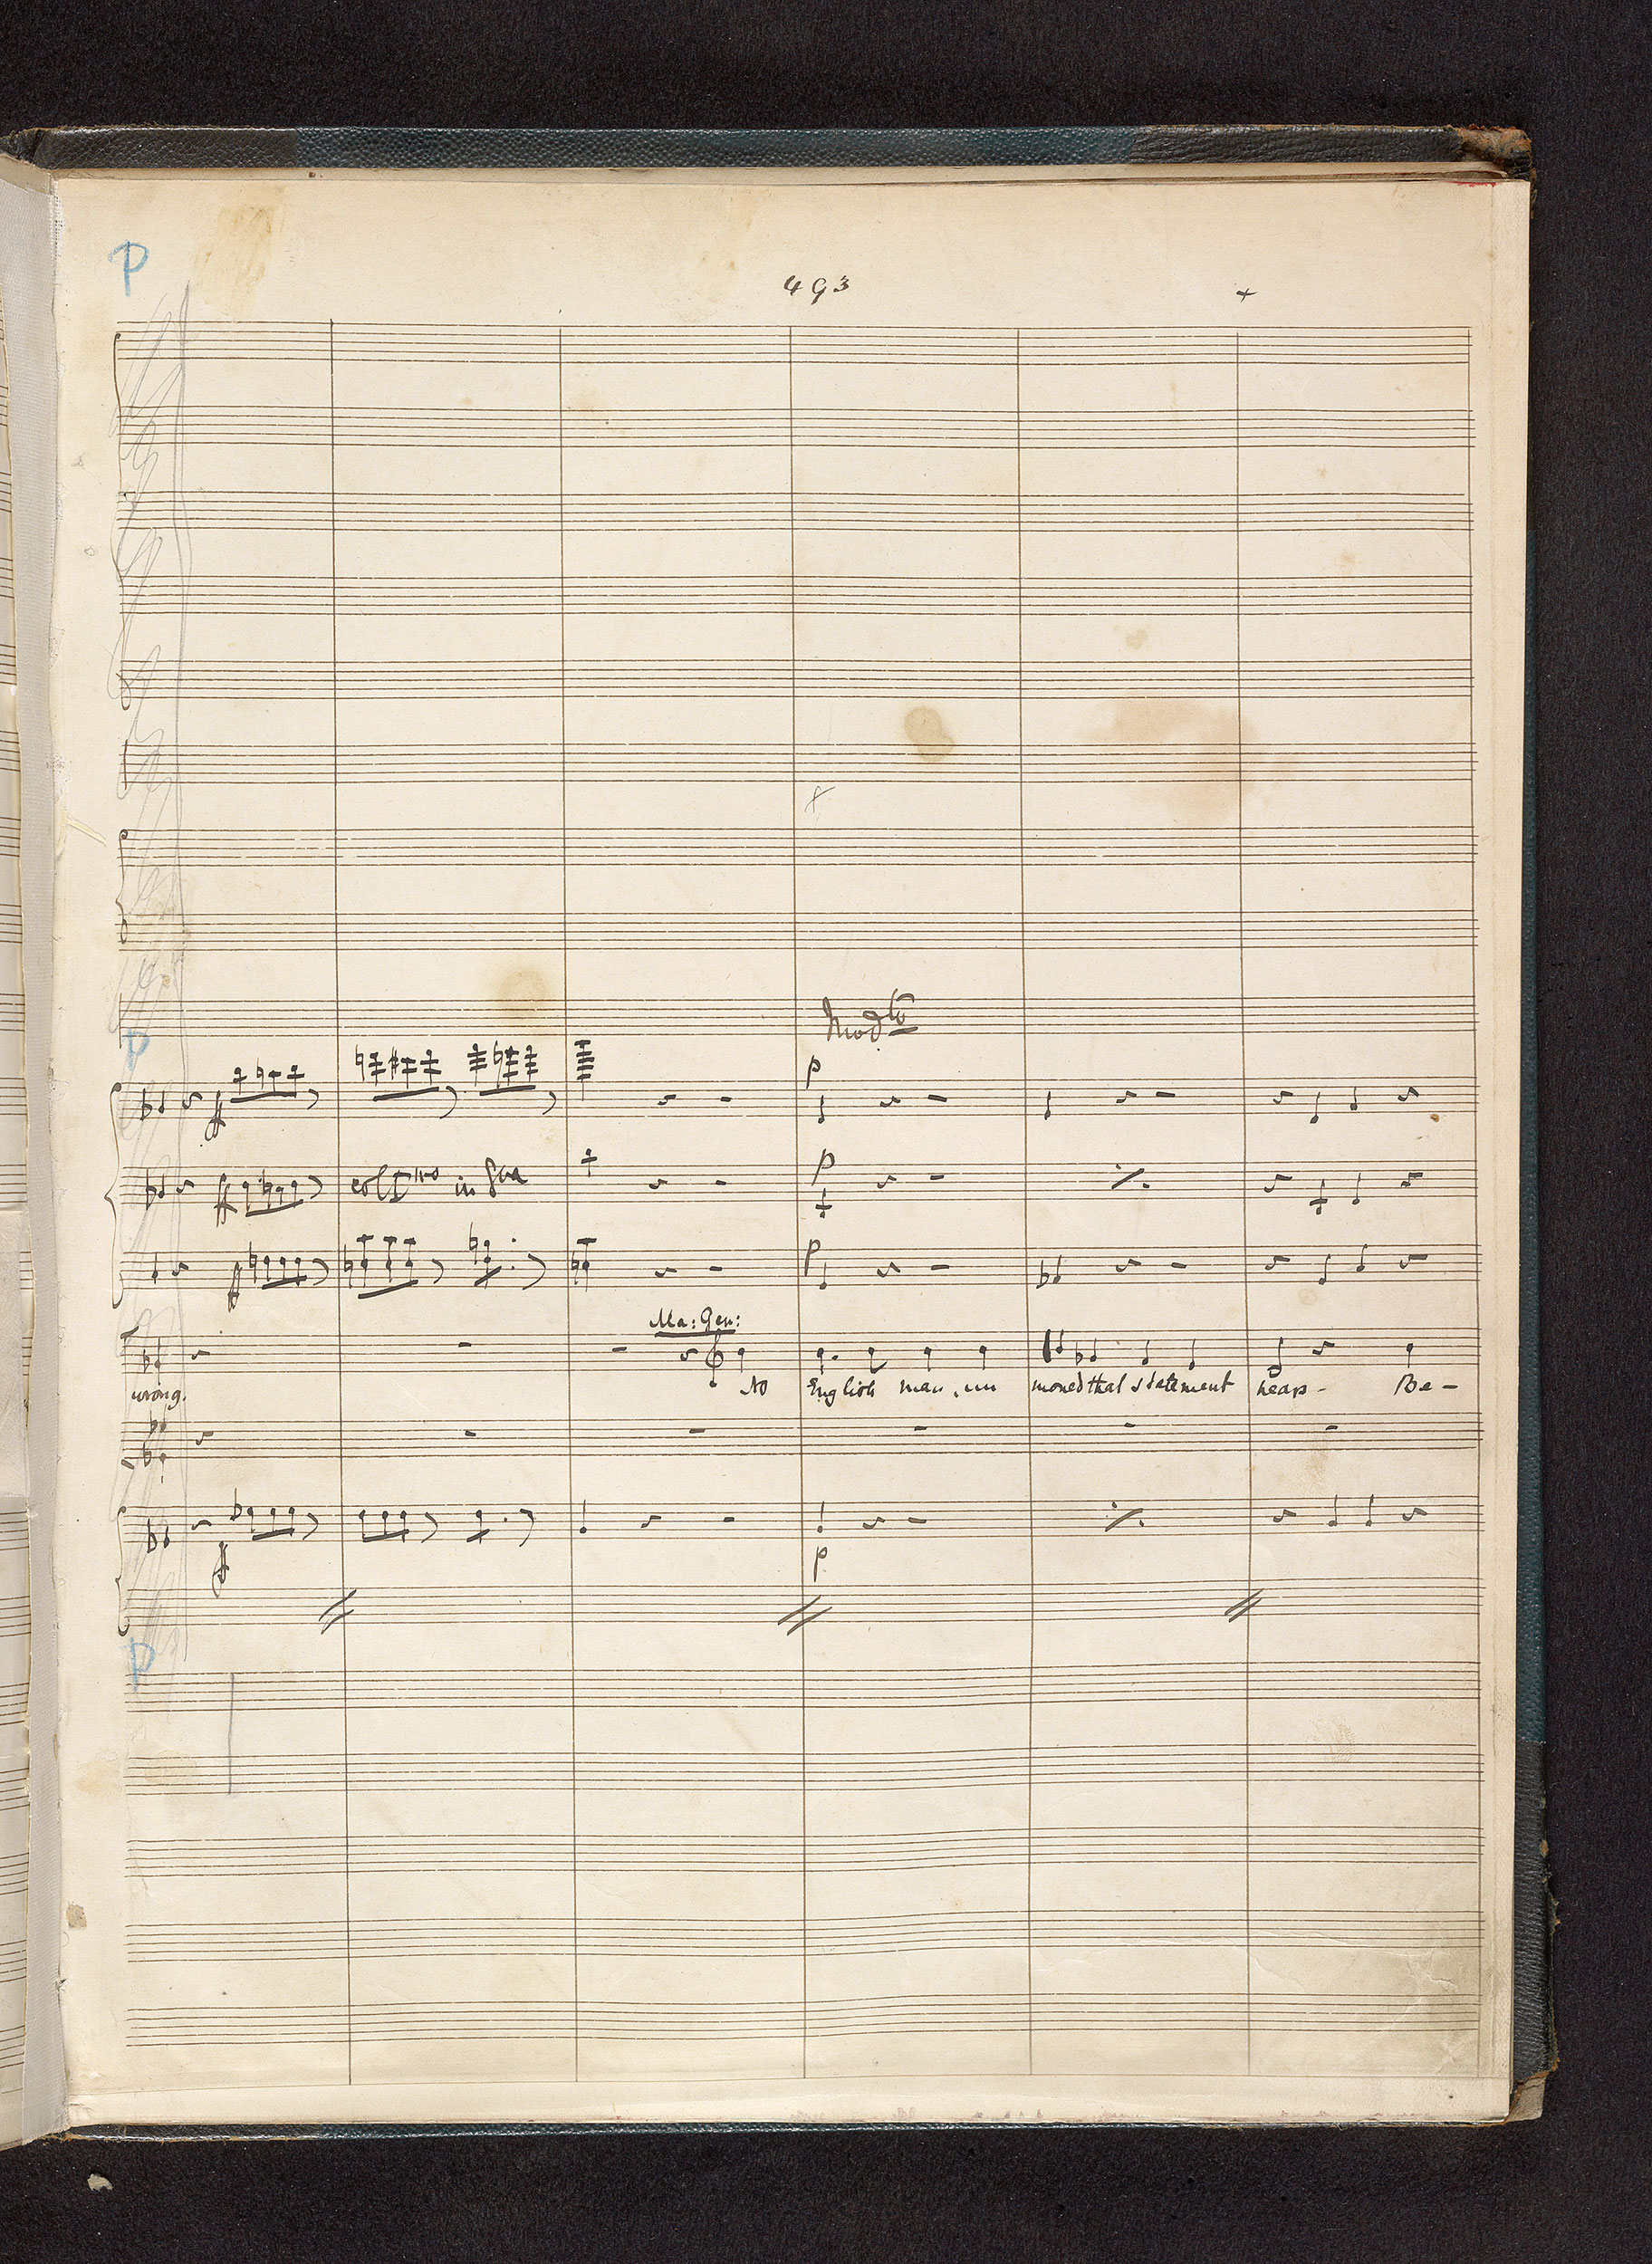 P
493
Modto
P
p
ff
p
ff
col Imo in 8va
p
ff
Ma: Gen:
wrong. No English man un moved that statement hears - Be -
ff
p
P